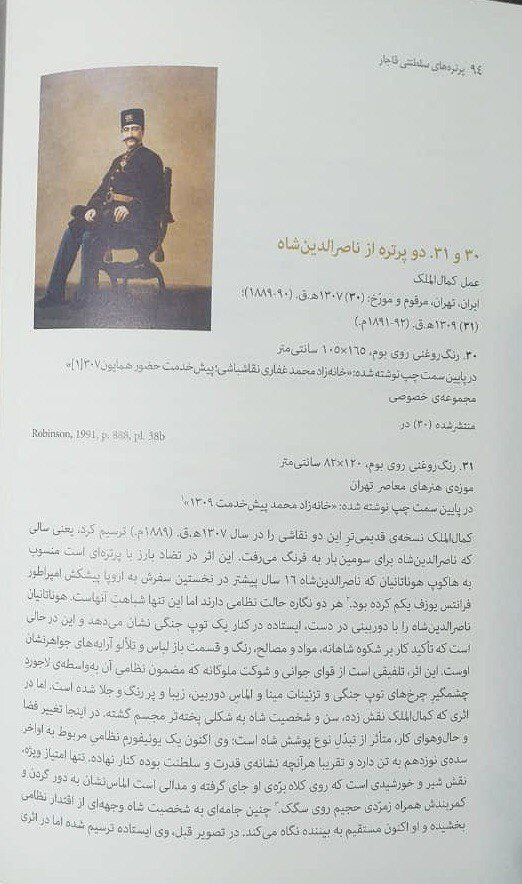 ۹۴ پرتره‌های سلطنتی قاجار
۳۰ و ۳۱. دو پرتره از ناصرالدین‌شاه
عمل کمال‌الملک
ایران، تهران، مرقوم و مورّخ: (۳۰) ۱۳۰۷ه‍.ق. (۹۰-۱۸۸۹)؛
(۳۱) ۱۳۰۹ه‍.ق. (۹۲-۱۸۹۱م.)
۳۰. رنگ‌روغنی روی بوم، ۱۶۵×۱۰۵ سانتی‌متر
در پایین سمت چپ نوشته شده: «خانه‌زاد محمد غفاری نقاشباشی؛ پیش‌خدمت حضور همایون ۳۰۷[۱]»
مجموعه‌ی خصوصی
منتشرشده (۳۰) در
Robinson, 1991, p. 888, pl. 38b
۳۱. رنگ‌روغنی روی بوم، ۱۲۰×۸۲ سانتی‌متر
موزه‌ی هنرهای معاصر تهران
در پایین سمت چپ نوشته شده: «خانه‌زاد محمد پیش‌خدمت ۱۳۰۹»۱
کمال‌الملک نسخه‌ی قدیمی‌تر این دو نقاشی را در سال ۱۳۰۷ه‍.ق. (۱۸۸۹م.) ترسیم کرد، یعنی سالی
که ناصرالدین‌شاه برای سومین بار به فرنگ می‌رفت. این اثر در تضاد بارز با پرتره‌ای است منسوب
به هاکوپ هوناتانیان که ناصرالدین‌شاه ۱۶ سال پیشتر در نخستین سفرش به اروپا پیشکش امپراطور
فرانتس یوزف یکم کرده بود.۲ هر دو نگاره حالت نظامی دارند اما این تنها شباهت آنهاست. هوناتانیان
ناصرالدین‌شاه را با دوربینی در دست، ایستاده در کنار یک توپ جنگی نشان می‌دهد و این در حالی
است که تأکید کار بر شکوه شاهانه، مواد و مصالح، رنگ و قسمت باز لباس و تلألو آرایه‌های جواهرنشان
اوست. این اثر، تلفیقی است از قوای جوانی و شوکت ملوکانه که مضمون نظامی آن به‌واسطه‌ی لاجورد
چشمگیر چرخ‌های توپ جنگی و تزئینات مینا و الماس دوربین، زیبا و پر رنگ و جلا شده است. اما در
اثری که کمال‌الملک نقش زده، سن و شخصیت شاه به شکلی پخته‌تر مجسم گشته. در اینجا تغییر فضا
و حال‌وهوای کار، متأثر از تبدّل نوع پوشش شاه است: وی اکنون یک یونیفورم نظامی مربوط به اواخر
سده‌ی نوزدهم به تن دارد و تقریبا هرآنچه نشانه‌ی قدرت و سلطنت بوده کنار نهاده. تنها امتیاز ویژه،
نقش شیر و خورشیدی است که روی کلاه برّه‌ی او جای گرفته و مدالی است الماس‌نشان به دور گردن و
کمربندش همراه زمردی حجیم روی سگک.۳ چنین جامه‌ای به شخصیت شاه وجهه‌ای از اقتدار نظامی
بخشیده و او اکنون مستقیم به بیننده نگاه می‌کند. در تصویر قبل، وی ایستاده ترسیم شده اما در اثری